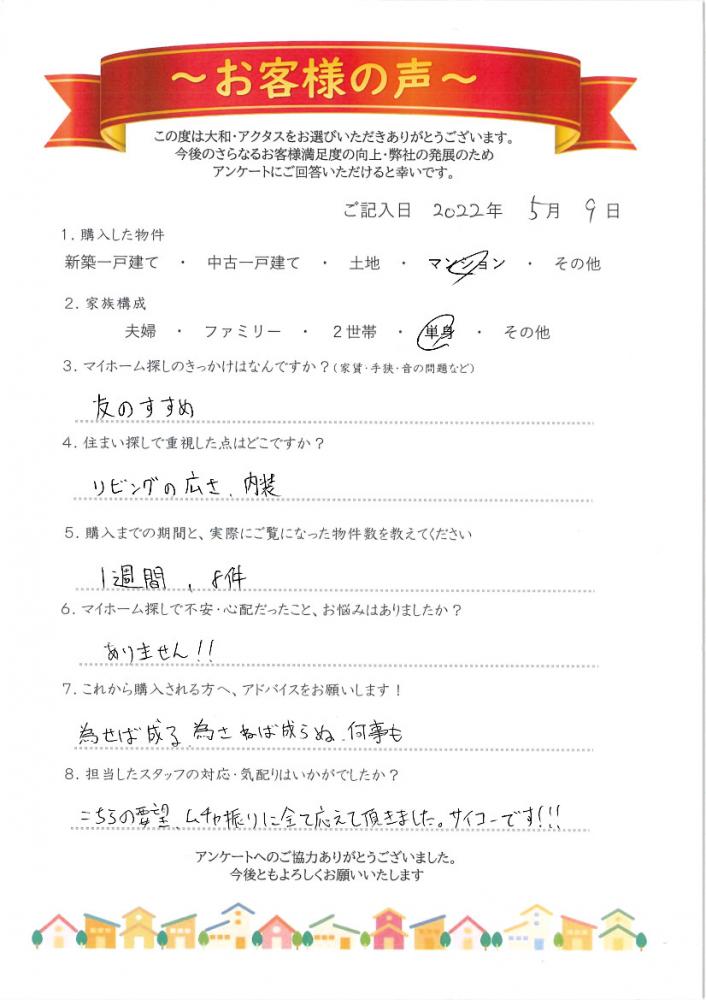 ～お客様の声～
この度は大和・アクタスをお選びいただきありがとうございます。
今後のさらなるお客様満足度の向上・弊社の発展のため
アンケートにご回答いただけると幸いです。
ご記入日 2022年 5月 9日
1. 購入した物件
新築一戸建て ・ 中古一戸建て ・ 土地 ・ マンション ・ その他
2. 家族構成
夫婦 ・ ファミリー ・ 2世帯 ・ 単身 ・ その他
3. マイホーム探しのきっかけはなんですか？(家賃・手狭・音の問題など)
友のすすめ
4. 住まい探しで重視した点はどこですか？
リビングの広さ、内装
5. 購入までの期間と、実際にご覧になった物件数を教えてください
1週間、8件
6. マイホーム探しで不安・心配だったこと、お悩みはありましたか？
ありません!!
7. これから購入される方へ、アドバイスをお願いします！
為せば成る、為さねば成らぬ、何事も
8. 担当したスタッフの対応・気配りはいかがでしたか？
こちらの要望、ムチャ振りに全て応えて頂きました。サイコーです!!!
アンケートへのご協力ありがとうございました。
今後ともよろしくお願いいたします